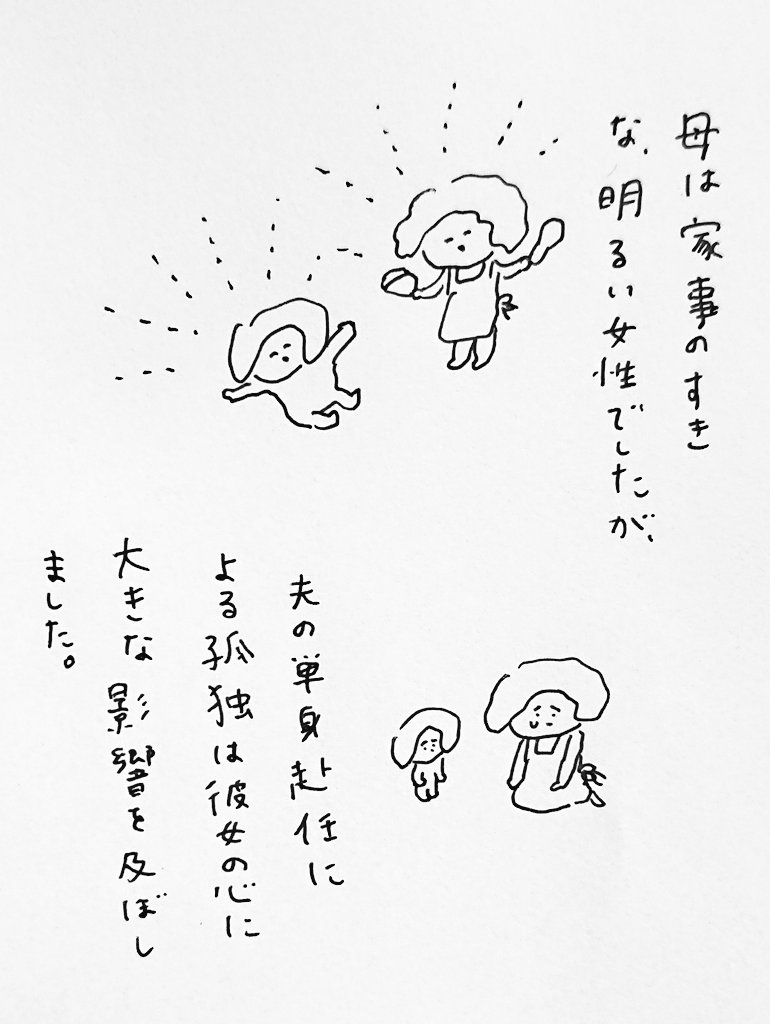 母は家事のすき
な、明るい女性でしたが、
夫の単身赴任に
よる孤独は彼女の心に
大きな影響を及ぼし
ました。